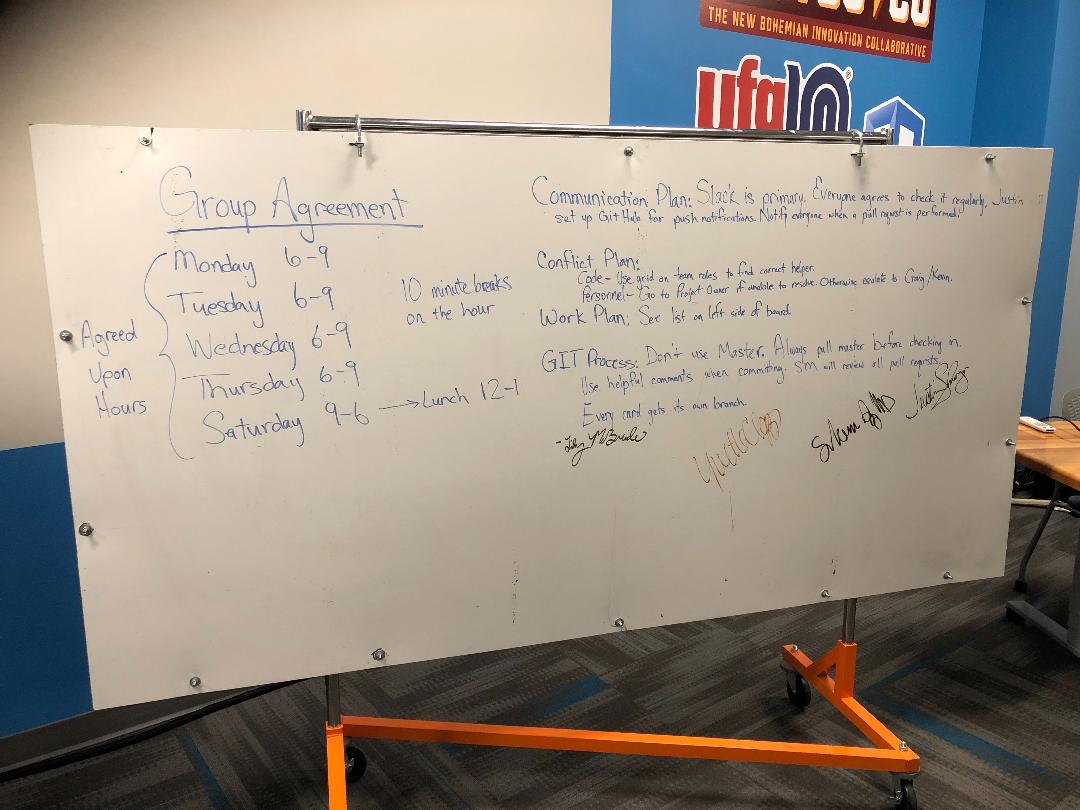 THE NEW BOHEMIAN INNOVATION COLLABORATIVE
ufg
Group Agreement
Agreed
Upon
Hours
Monday 6-9
Tuesday 6-9
Wednesday 6-9
Thursday 6-9
Saturday 9-6 → Lunch 12-1
10 minute breaks
on the hour
Communication Plan: Slack is primary. Everyone agrees to check it regularly. Justin
set up GitHub for push notifications. Notify everyone when a pull request is performed.
Conflict Plan:
Code- Use grid on team roles to find correct helper.
Personnel- Go to Project Owner if unable to resolve. Otherwise escalate to Craig/Kevin.
Work Plan: See list on left side of board
GIT Process: Don't use Master. Always pull master before checking in.
Use helpful comments when commiting. SM will review all pull requests.
Every card gets its own branch.